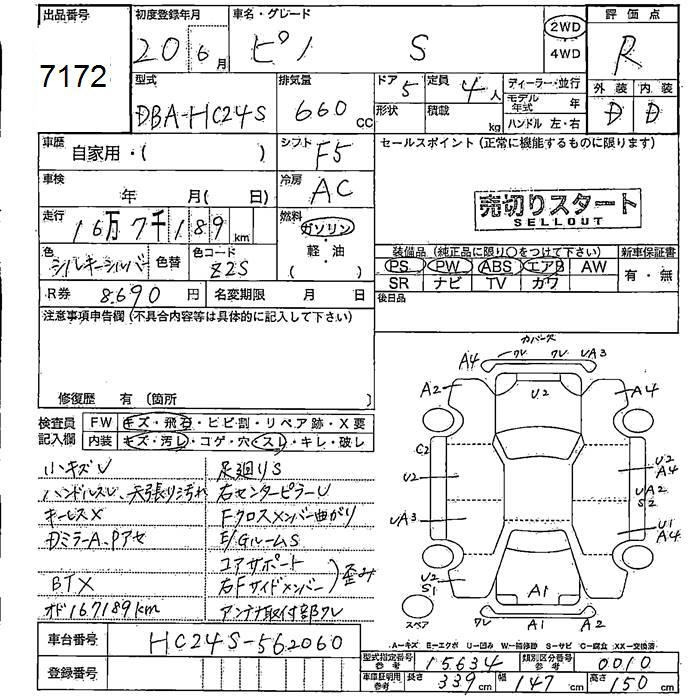 出品番号
7172
初度登録年月
20 6月
車名・グレード
ピノ S
2WD
4WD
評価点
R
外装 内装
D D
型式
DBA-HC24S
排気量
660cc
ドア 5
定員 4人
形状
積載 kg
ディーラー・並行
モデル年式 年
ハンドル 左・右
車歴
自家用・( )
シフト F5
セールスポイント(正常に機能するものに限ります)
売切りスタート
SELLOUT
車検
年 月( 日)
冷房 AC
走行
16万7千189km
燃料
ガソリン・軽油
( )
色
シルキーシルバー
色替
色コード
Z2S
装備品(純正品に限り○をつけて下さい)
PS PW ABS エアB AW
SR ナビ TV カワ
新車保証書
有・無
R券 8,690円
名変期限 月 日
後日品
注意事項申告欄(不具合内容等は具体的に記入して下さい)
修復歴 有(箇所 )
検査員記入欄
FW キズ・飛石・ヒビ割・リペア跡・X要
内装 キズ・汚レ・コゲ・穴・スレ・キレ・破レ
小キズU
ハンドルスレ、天張り汚れ
キーレスX
DミラーA、Pアセ
BTX
オド167189km
足廻りS
右センターピラーU
Fクロスメンバー曲がり
E/GルームS
コアサポート
右Fサイドメンバー
歪み
アンテナ取付部ワレ
カバーズ
A4 ワレ ワレ UA3
A2 U2 A4
C2
U2
UA3
U2
A4
UA2
S2
U1
A4
U2
S1
A1
スペア
ワレ A1 A2
A-キズ E-エクボ U-凹み W-補修跡 S-サビ C-腐食 XX-交換済
車台番号
HC24S-562060
登録番号
型式指定番号 参考
15634
類別区分番号 参考
0010
車庫証明用 参考
長さ 339cm
幅 147cm
高さ 150cm